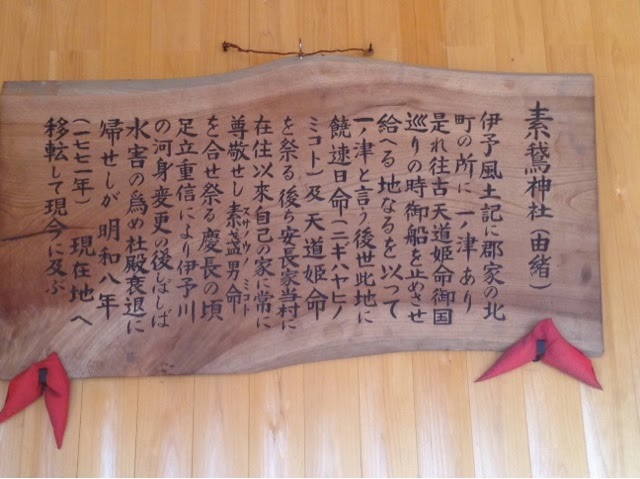 素鵞神社(由緒)
伊予風土記に郡家の北
町の所に一ノ津あり
是れ往古天道姫命御国
巡りの時御船を止めさせ
給へる地なるを以って
一ノ津と言う後世此地に
饒速日命(ニギハヤヒノ
ミコト)及天道姫命
を祭る後ち安長家当村に
在住以来自己の家に常に
尊敬せし素盞男命
スサノウノミコト
を合せ祭る慶長の頃
足立重信により伊予川
の河身変更の後しばしば
水害の為め社殿衰退に
帰せしが明和八年
(一七七一年)現在地へ
移転して現今に及ぶ